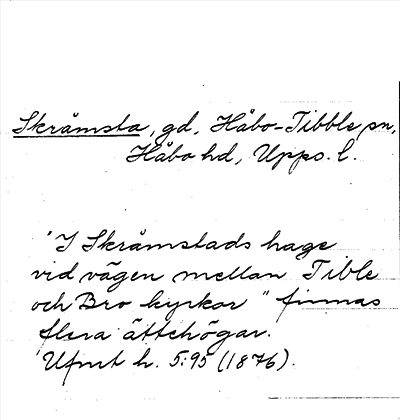 Skråmsta, gd, Håbo-Tibble sn,
Håbo hd, Upps. l.
"I Skråmstads hage
vid vägen mellan Tible
och Bro kyrkor" finnas
flera ättehögar.
Ufmt h. 5:95 (1876).